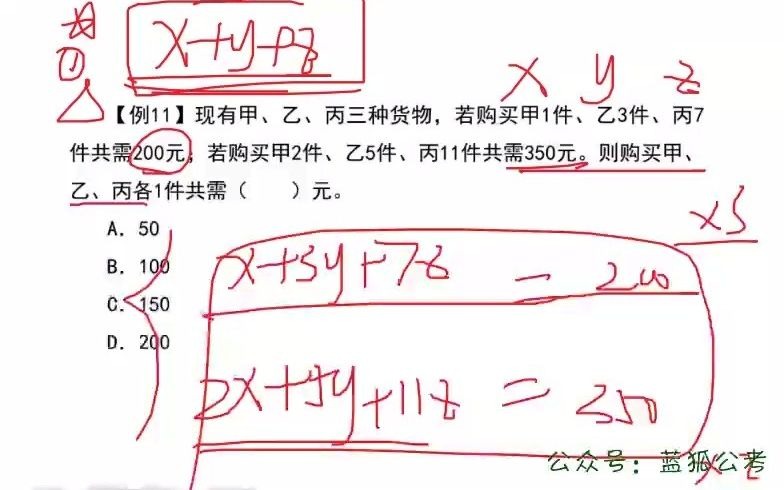 x+y+z
①
x y z
【例11】现有甲、乙、丙三种货物，若购买甲1件、乙3件、丙7
件共需200元，若购买甲2件、乙5件、丙11件共需350元。则购买甲、
乙、丙各1件共需（　　）元。
A. 50
B. 100
C. 150
D. 200
×3
x+3y+7z = 200
2x+5y+11z = 350
×2
公众号：蓝狐公考